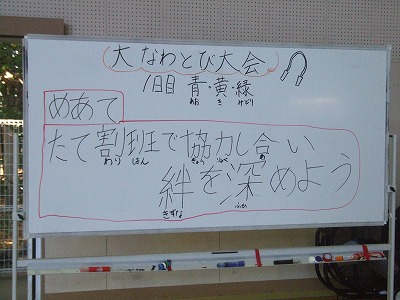 大なわとび大会
1日目 青・黄・緑
あお き みどり
めあて
たて割班で協力し合い
わり はん きょうりょく あ
絆を深めよう
きずな ふか